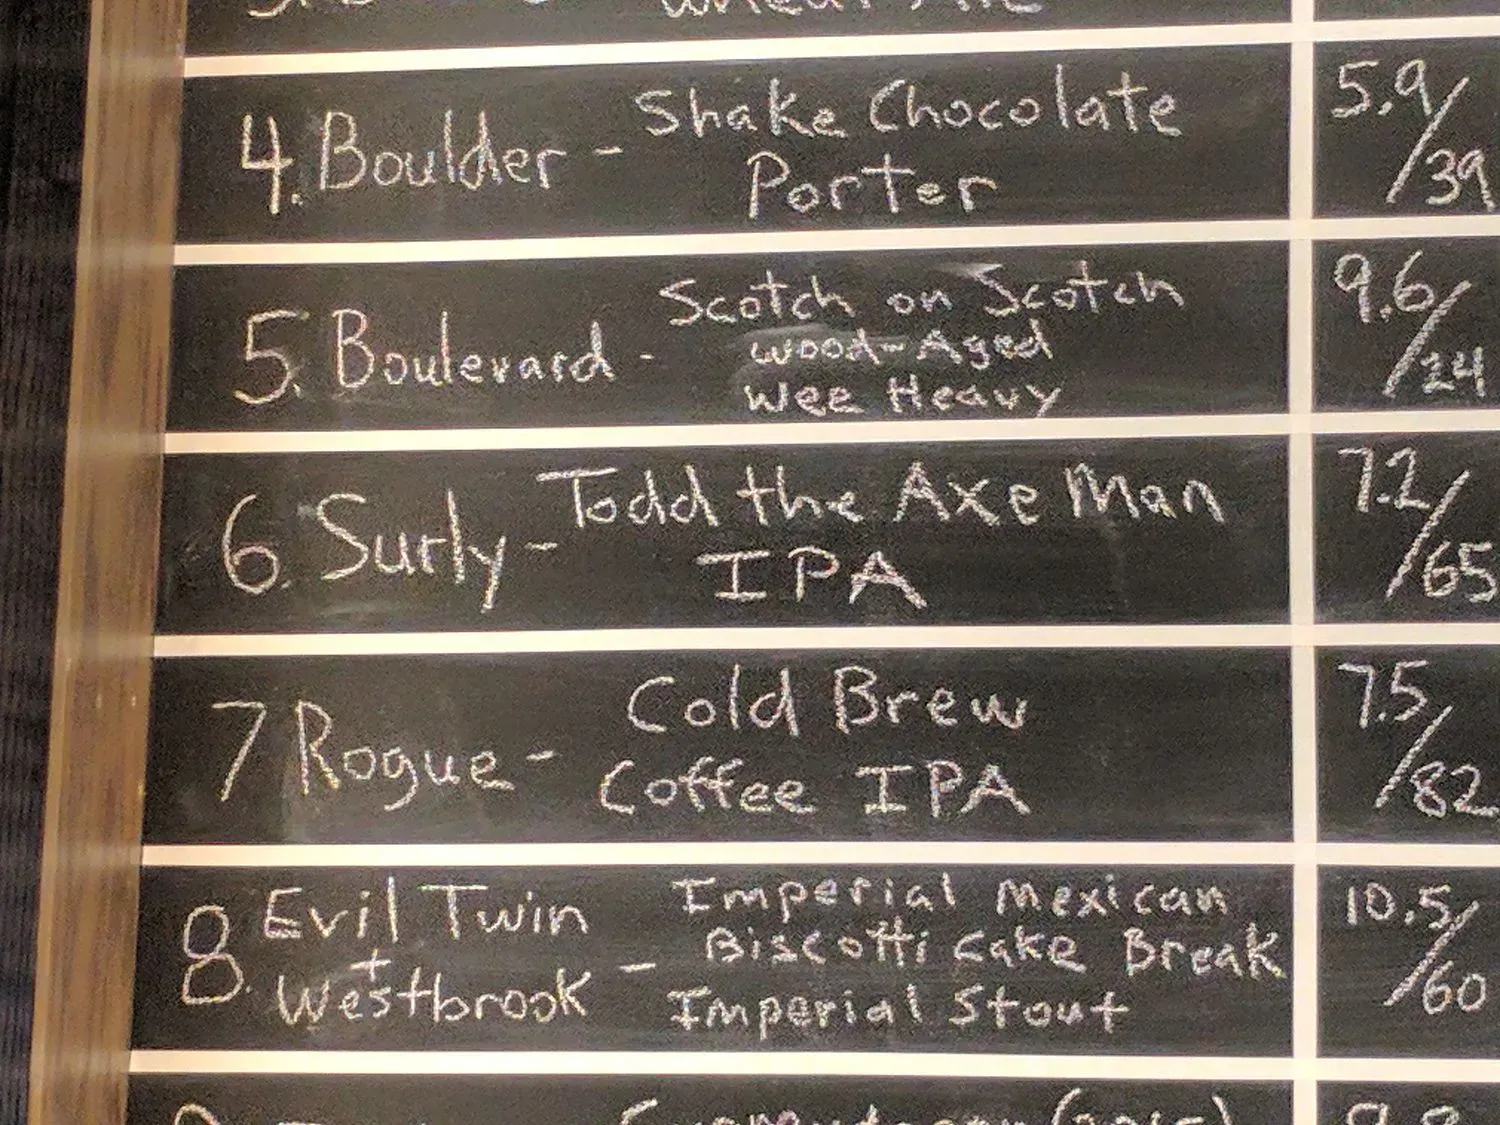 Wheat Ale
4. Boulder - Shake Chocolate
Porter
5.9/39
5. Boulevard - Scotch on Scotch
Wood-Aged
Wee Heavy
9.6/24
6. Surly - Todd the Axe Man
IPA
7.2/65
7 Rogue - Cold Brew
Coffee IPA
7.5/82
8. Evil Twin
+
Westbrook - Imperial Mexican
Biscotti Cake Break
Imperial Stout
10.5/60
(2015)